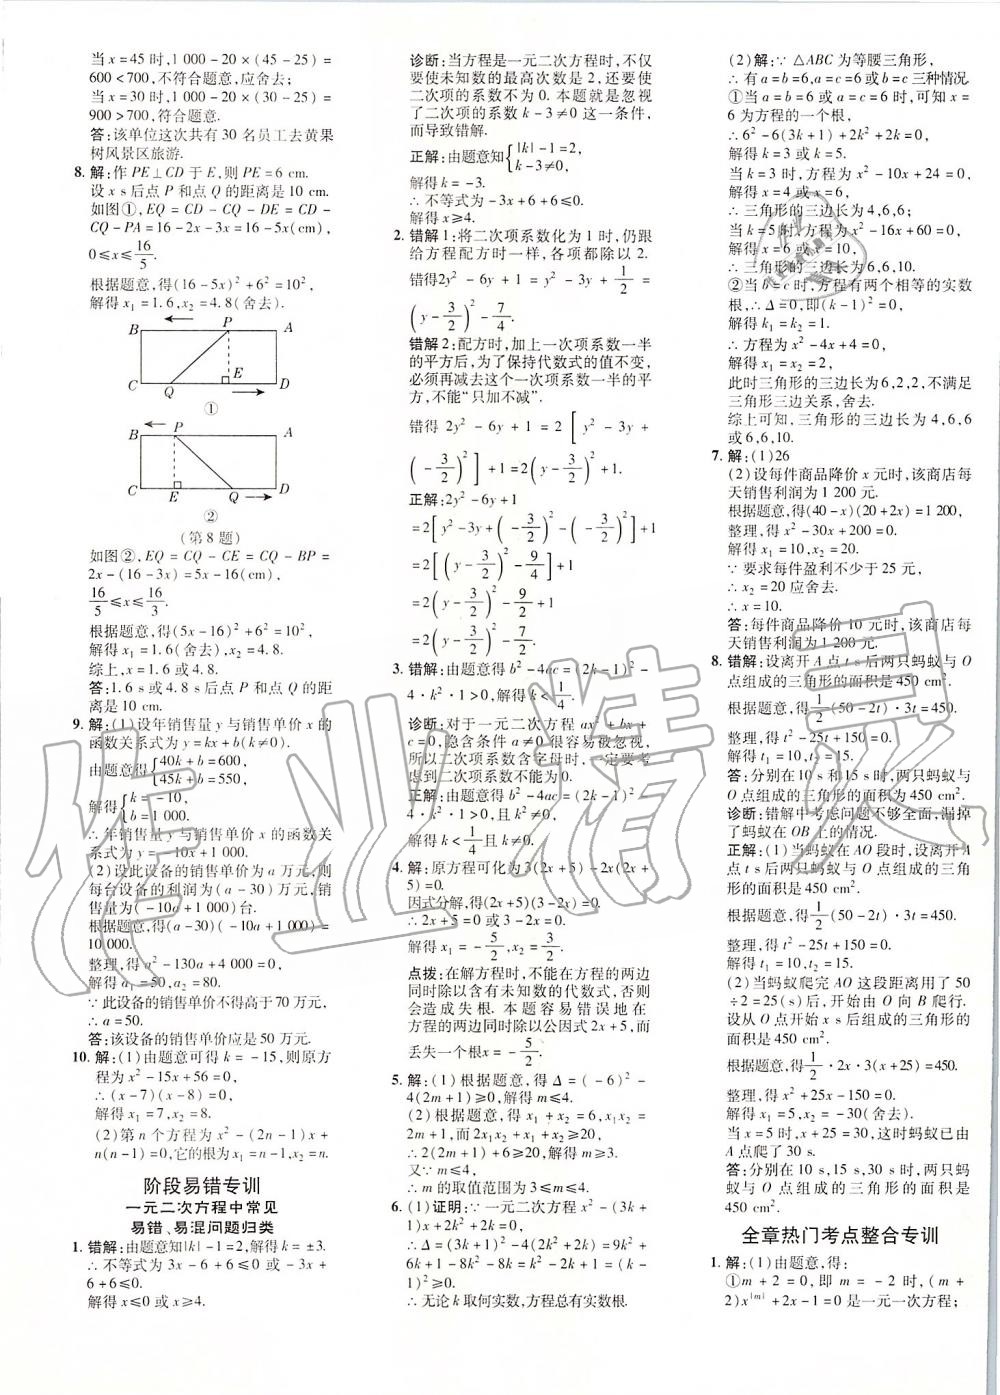 当 x=45 时,1 000-20×(45-25)=
600<700,不符合题意,应舍去;
当 x=30 时,1 000-20×(30-25)=
900>700,符合题意.
答:该单位这次共有 30 名员工去黄果
树风景区旅游.
8. 解:作 PE⊥CD 于 E,则 PE=6 cm.
设 x s后点 P 和点 Q 的距离是 10 cm.
如图①,EQ=CD-CQ-DE=CD-
CQ-PA=16-2x-3x=16-5x(cm),
0≤x≤16/5.
根据题意,得(16-5x)²+6²=10²,
解得 x₁=1.6,x₂=4.8(舍去).
B P A
C Q E D
①
B P A
C E Q D
②
(第 8 题)
如图②,EQ=CQ-CE=CQ-BP=
2x-(16-3x)=5x-16(cm),
16/5≤x≤16/3.
根据题意,得(5x-16)²+6²=10²,
解得 x₁=1.6(舍去),x₂=4.8.
综上,x=1.6 或 4.8.
答:1.6 s或 4.8 s 后点 P 和点 Q 的距
离是 10 cm.
9. 解:(1)设年销售量 y 与销售单价 x 的
函数关系式为 y=kx+b(k≠0).
由题意得{40k+b=600,
45k+b=550,
解得{k=-10,
b=1 000.
∴年销售量 y 与销售单价 x 的函数关
系式为 y=-10x+1 000.
(2)设此设备的销售单价为 a 万元,则
每台设备的利润为(a-30)万元,销
售量为(-10a+1 000)台.
根据题意,得(a-30)(-10a+1 000)=
10 000.
整理,得 a²-130a+4 000=0,
解得 a₁=50,a₂=80.
∵此设备的销售单价不得高于70万元,
∴a=50.
答:该设备的销售单价应是 50 万元.
10. 解:(1)由题意可得 k=-15,则原方
程为 x²-15x+56=0,
∴(x-7)(x-8)=0,
解得 x₁=7,x₂=8.
(2)第 n 个方程为 x²-(2n-1)x+
n(n-1)=0,它的根为x₁=n-1,x₂=n.
阶段易错专训
一元二次方程中常见
易错、易混问题归类
1. 错解:由题意知|k|-1=2,解得 k=±3.
∴不等式为 3x-6+6≤0 或-3x+
6+6≤0.
解得 x≤0 或 x≥4.
诊断:当方程是一元二次方程时,不仅
要使未知数的最高次数是 2,还要使
二次项的系数不为 0. 本题就是忽视
了二次项的系数 k-3≠0 这一条件,
而导致错解.
正解:由题意知{|k|-1=2,
k-3≠0,
解得 k=-3.
∴不等式为-3x+6+6≤0.
解得 x≥4.
2. 错解 1:将二次项系数化为 1 时,仍跟
给方程配方时一样,各项都除以 2.
错得2y²-6y+1=y²-3y+1/2=
(y-3/2)²-7/4.
错解 2:配方时,加上一次项系数一半
的平方后,为了保持代数式的值不变,
必须再减去这个一次项系数一半的平
方,不能“只加不减”.
错得 2y²-6y+1=2[y²-3y+
(-3/2)²]+1=2(y-3/2)²+1.
正解:2y²-6y+1
=2[y²-3y+(-3/2)²-(-3/2)²]+1
=2[(y-3/2)²-9/4]+1
=2(y-3/2)²-9/2+1
=2(y-3/2)²-7/2.
3. 错解:由题意得 b²-4ac=(2k-1)²-
4·k²·1>0,解得 k<1/4.
诊断:对于一元二次方程 ax²+bx+
c=0,隐含条件 a≠0 很容易被忽视,
所以二次项系数含字母时,一定要考
虑到二次项系数不能为 0.
正解:由题意得 b²-4ac=(2k-1)²-
4·k²·1>0,且 k²≠0,
解得 k<1/4且 k≠0.
4. 解:原方程可化为3(2x+5)-2x(2x+
5)=0.
因式分解,得(2x+5)(3-2x)=0.
∴2x+5=0 或 3-2x=0.
解得 x₁=-5/2,x₂=3/2.
点拨:在解方程时,不能在方程的两边
同时除以含有未知数的代数式,否则
会造成失根. 本题容易错误地在
方程的两边同时除以公因式 2x+5,而
丢失一个根 x=-5/2.
5. 解:(1)根据题意,得 Δ=(-6)²-
4(2m+1)≥0,解得 m≤4.
(2)根据题意,得 x₁+x₂=6,x₁x₂=
2m+1,而 2x₁x₂+x₁+x₂≥20,
∴2(2m+1)+6≥20,解得 m≥3.
又∵m≤4,
∴m 的取值范围为 3≤m≤4.
6. (1)证明:∵一元二次方程 x²-(3k+
1)x+2k²+2k=0,
∴Δ=(3k+1)²-4(2k²+2k)=9k²+
6k+1-8k²-8k=k²-2k+1=(k-1)²≥0.
∴无论 k 取何实数,方程总有实数根.
(2)解:∵△ABC 为等腰三角形,
∴有 a=b=6,a=c=6或b=c三种情况.
①当 a=b=6 或 a=c=6 时,可知 x=
6 为方程的一个根,
∴6²-6(3k+1)+2k²+2k=0,
解得 k=3 或 k=5.
当 k=3 时,方程为 x²-10x+24=0,
解得 x=4 或 x=6,
∴三角形的三边长为 4,6,6;
当 k=5 时,方程为 x²-16x+60=0,
解得 x=6 或 x=10,
∴三角形的三边长为 6,6,10.
②当 b=c 时,方程有两个相等的实数
根,∴Δ=0,即(k-1)²=0,
解得 k₁=k₂=1.
∴方程为 x²-4x+4=0,
解得 x₁=x₂=2.
此时三角形的三边长为 6,2,2,不满足
三角形三边关系,舍去.
综上可知,三角形的三边长为 4,6,6
或6,6,10.
7. 解:(1)26
(2)设每件商品降价 x 元时,该商店每
天销售利润为 1 200 元.
根据题意,得(40-x)(20+2x)=1 200,
整理,得 x²-30x+200=0.
解得 x₁=10,x₂=20.
∵要求每件盈利不少于 25 元,
∴x₂=20 应舍去.
∴x=10.
答:每件商品降价 10 元时,该商店每
天销售利润为 1 200 元.
8. 错解:设离开 A 点 t s 后两只蚂蚁与 O
点组成的三角形的面积是 450 cm².
根据题意,得1/2(50-2t)·3t=450.
整理,得 t²-25t+150=0.
解得 t₁=10,t₂=15.
答:分别在10 s和15 s时,两只蚂蚁与
O 点组成的三角形的面积为 450 cm².
诊断:错解中考虑问题不够全面,漏掉
了蚂蚁在 OB 上的情况.
正解:(1)当蚂蚁在 AO 段时,设离开 A
点 t s 后两只蚂蚁与 O 点组成的三角
形的面积是 450 cm².
根据题意,得1/2(50-2t)·3t=450.
整理,得 t²-25t+150=0.
解得 t₁=10,t₂=15.
(2)当蚂蚁爬完 AO 这段距离用了 50
÷2=25(s)后,开始由 O 向 B 爬行.
设从 O 点开始 x s 后组成的三角形的
面积是 450 cm².
根据题意,得1/2·2x·3(x+25)=450.
整理,得 x²+25x-150=0.
解得 x₁=5,x₂=-30(舍去).
当 x=5 时,x+25=30,这时蚂蚁已由
A 点爬了 30 s.
答:分别在 10 s,15 s,30 s 时,两只蚂
蚁与 O 点组成的三角形的面积是
450 cm².
全章热门考点整合专训
1. 解:(1)由题意,得:
①m+2=0,即 m=-2 时,(m+
2)x^|m|+2x-1=0 是一元一次方程;
作业精灵